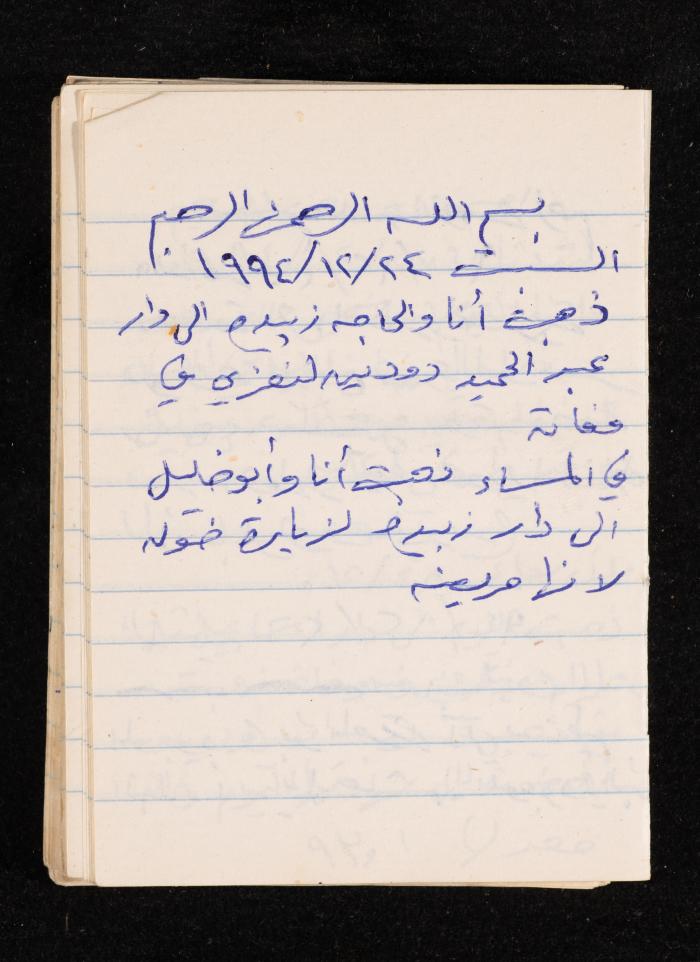 بسم الله الرحمن الرحيم
السبت ٢٤/١٢/١٩٩٤
ذهبت أنا والحاجه زبيده الى دار
عبد الحميد دودين لنعزي في
في المساء ذهبت أنا وأبو خليل
الى دار زبيده لزيارة خوله
لانها مريضه